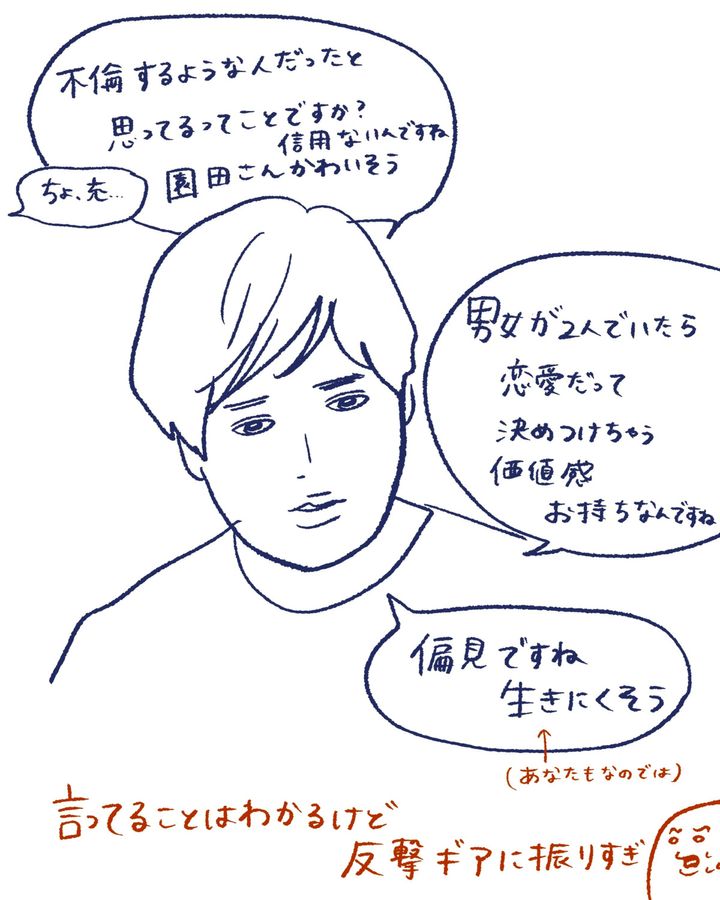 不倫するような人だったと
思ってるってことですか?
信用ないんですね
園田さんかわいそう
ちょ、充…
男女が2人でいたら
恋愛だって
決めつけちゃう
価値感
お持ちなんですね
偏見ですね
生きにくそう
(あなたもなのでは)
言ってることはわかるけど
反撃ギアに振りすぎ